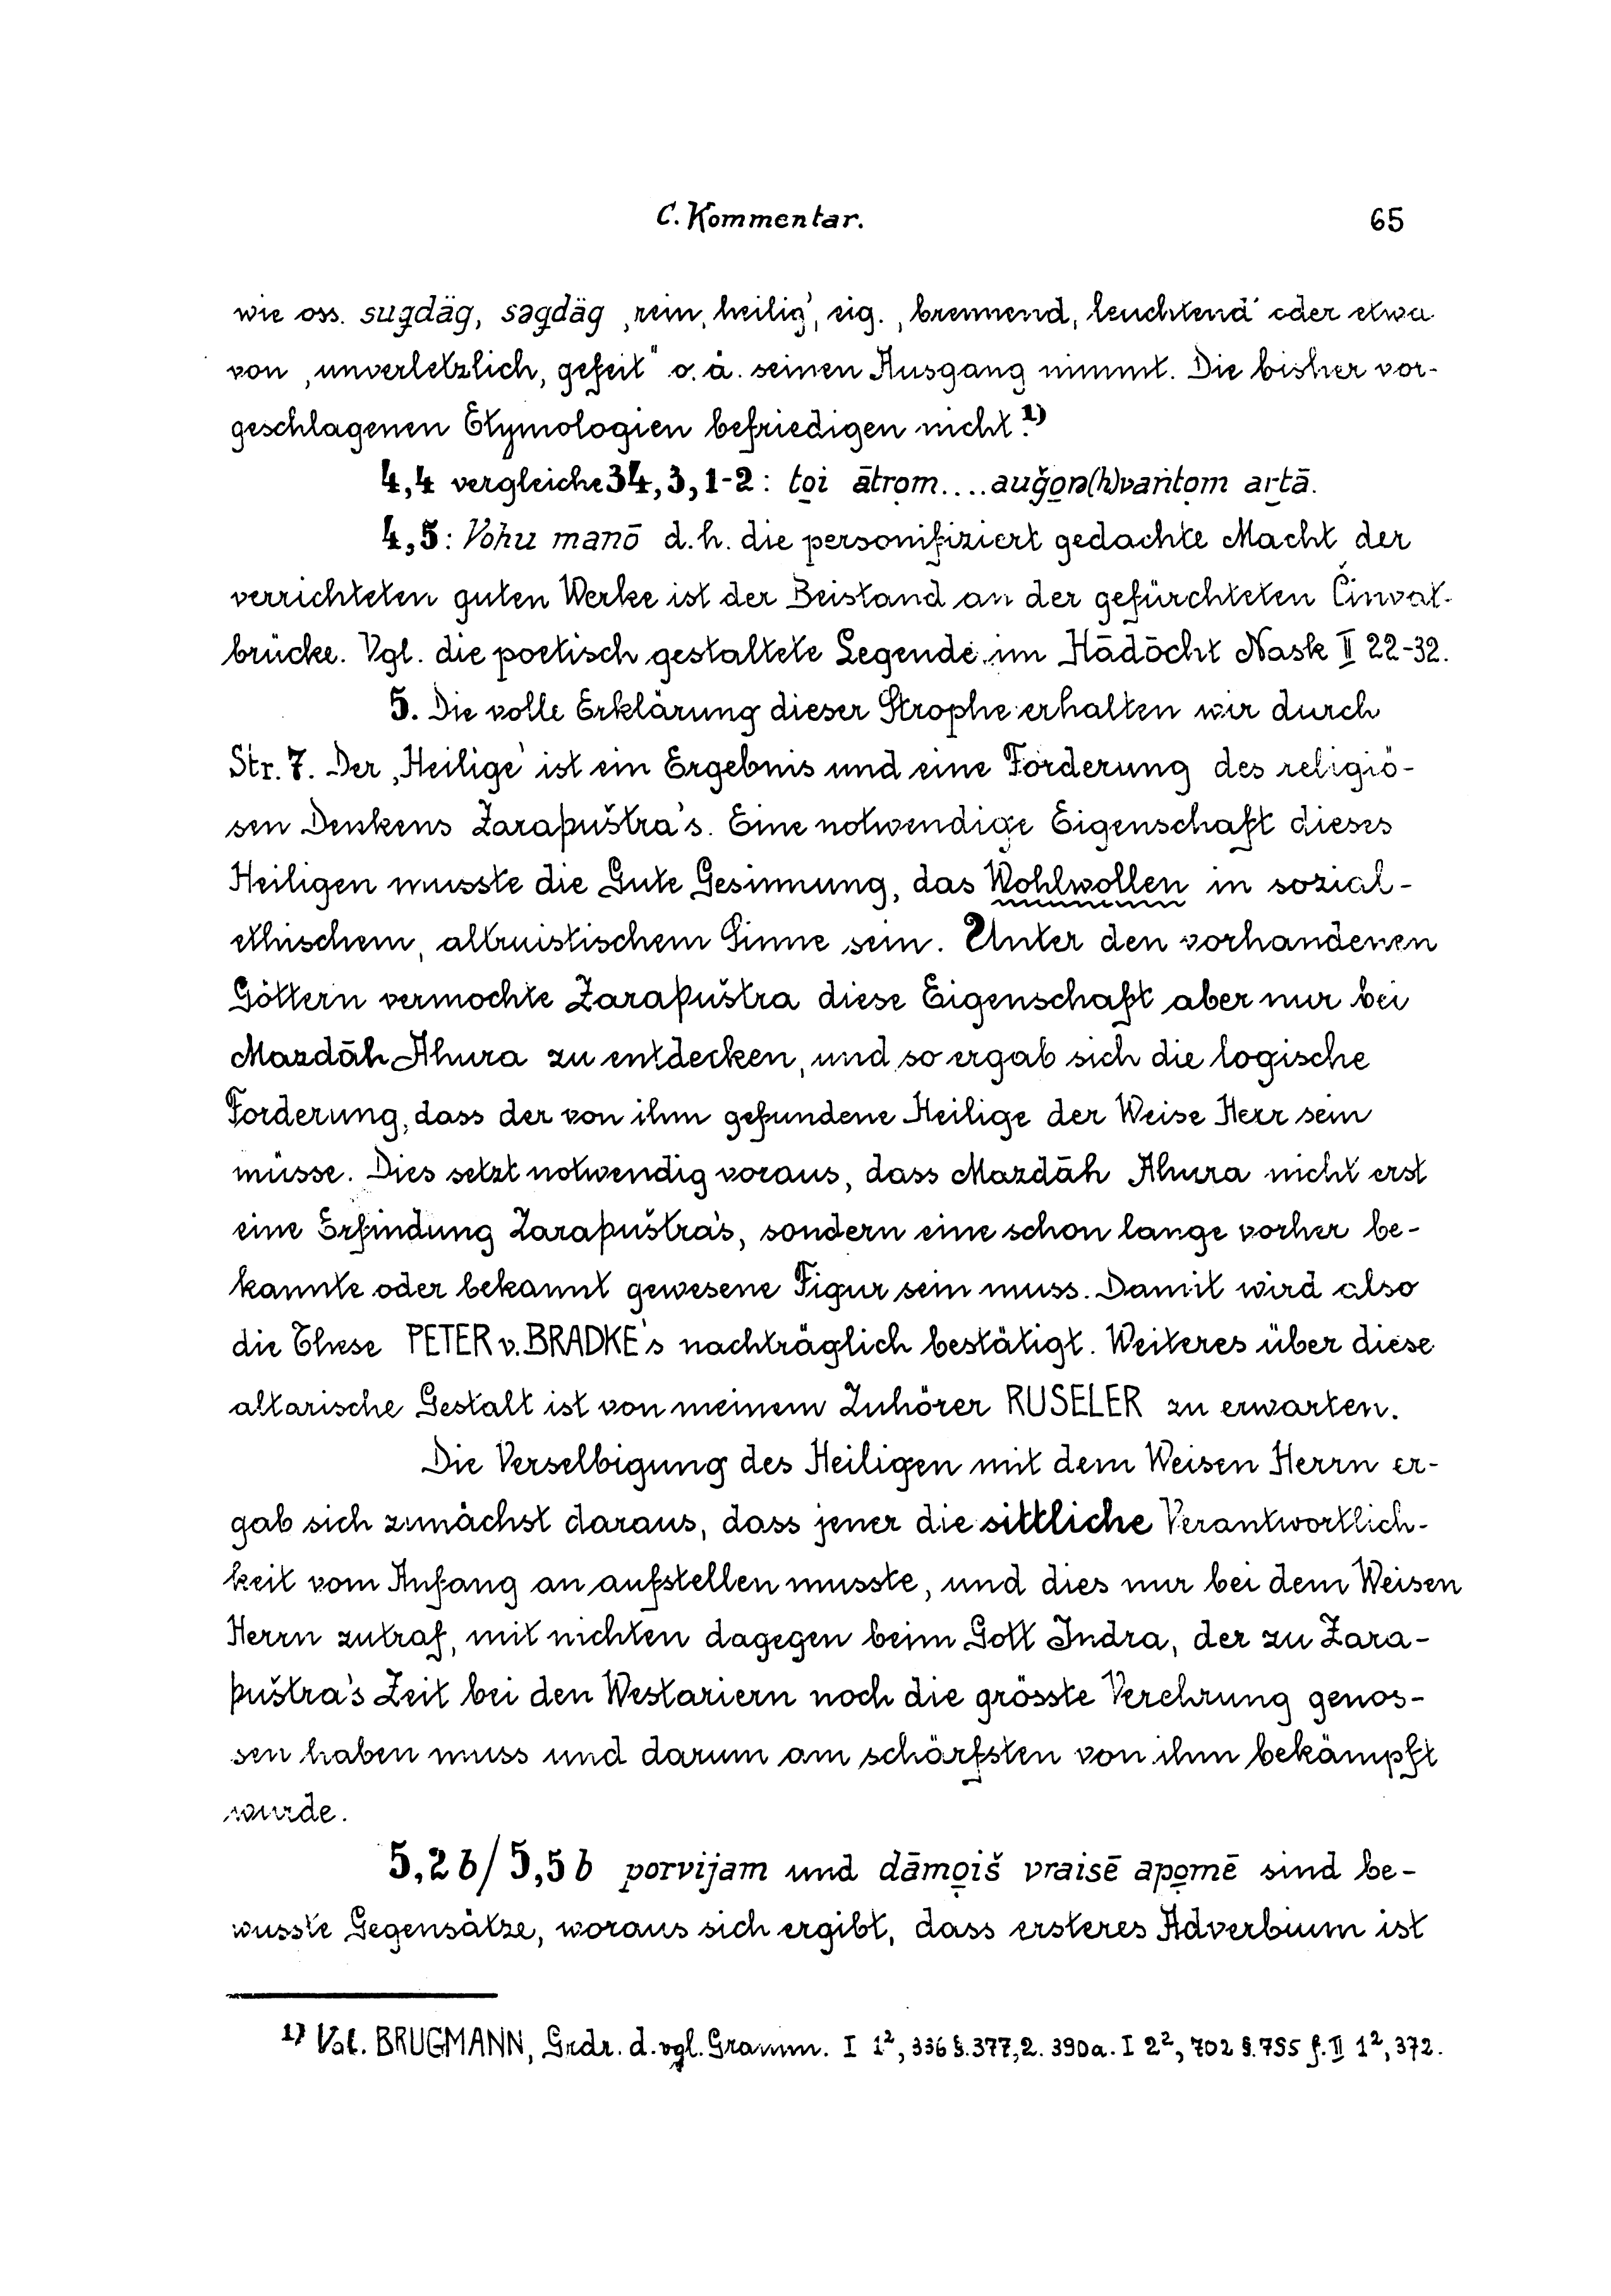 C. Kommentar. 65
wie oss. sugdäg, sägdäg ‚rein, heilig’, eig. ‚brennend, leuchtend’ oder etwa
von ‚unverletzlich, gefeit" o. ä. seinen Ausgang nimmt. Die bisher vor-
geschlagenen Etymologien befriedigen nicht.¹⁾
4,4 vergleiche 34, 3, 1-2: toi ātrom....
4,5: Vohu manō d. h. die personifiziert gedachte Macht der
verrichteten guten Werke ist der Beistand an der gefürchteten Činvat-
brücke. Vgl. die poetisch gestaltete Legende im Hādōcht Nask II 22-32.
5. Die volle Erklärung dieser Strophe erhalten wir durch
Str. 7. Der ‚Heilige’ ist ein Ergebnis und eine Forderung des religiö-
sen Denkens Zaraþuštra's. Eine notwendige Eigenschaft dieses
Heiligen musste die Gute Gesinnung, das Wohlwollen in sozial-
ethischem, altruistischem Sinne sein. Unter den vorhandenen
Göttern vermochte Zaraþuštra diese Eigenschaft aber nur bei
Mazdāh Ahura zu entdecken, und so ergab sich die logische
Forderung, dass der von ihm gefundene Heilige der Weise Herr sein
müsse. Dies setzt notwendig voraus, dass Mazdāh Ahura nicht erst
eine Erfindung Zaraþuštra's, sondern eine schon lange vorher be-
kannte oder bekannt gewesene Figur sein muss. Damit wird also
die These PETER v. BRADKE's nachträglich bestätigt. Weiteres über diese
altarische Gestalt ist von meinem Zuhörer RUSELER zu erwarten.
Die Verselbigung des Heiligen mit dem Weisen Herrn er-
gab sich zunächst daraus, dass jener die sittliche Verantwortlich-
keit vom Anfang an aufstellen musste, und dies nur bei dem Weisen
Herrn zutraf, mit nichten dagegen beim Gott Indra, der zu Zara-
þuštra's Zeit bei den Westariern noch die grösste Verehrung genos-
sen haben muss und darum am schärfsten von ihm bekämpft
wurde.
5,2b/5,5b porvijam und dāmo̤iš vraisē apo̤mē sind be-
wusste Gegensätze, woraus sich ergibt, dass ersteres Adverbium ist
¹⁾ Vgl. BRUGMANN, Grdr. d. vgl. Gramm. I 1², 336 §. 377,2. 390a. I 2², 702 §. 755 f. II 1², 372.